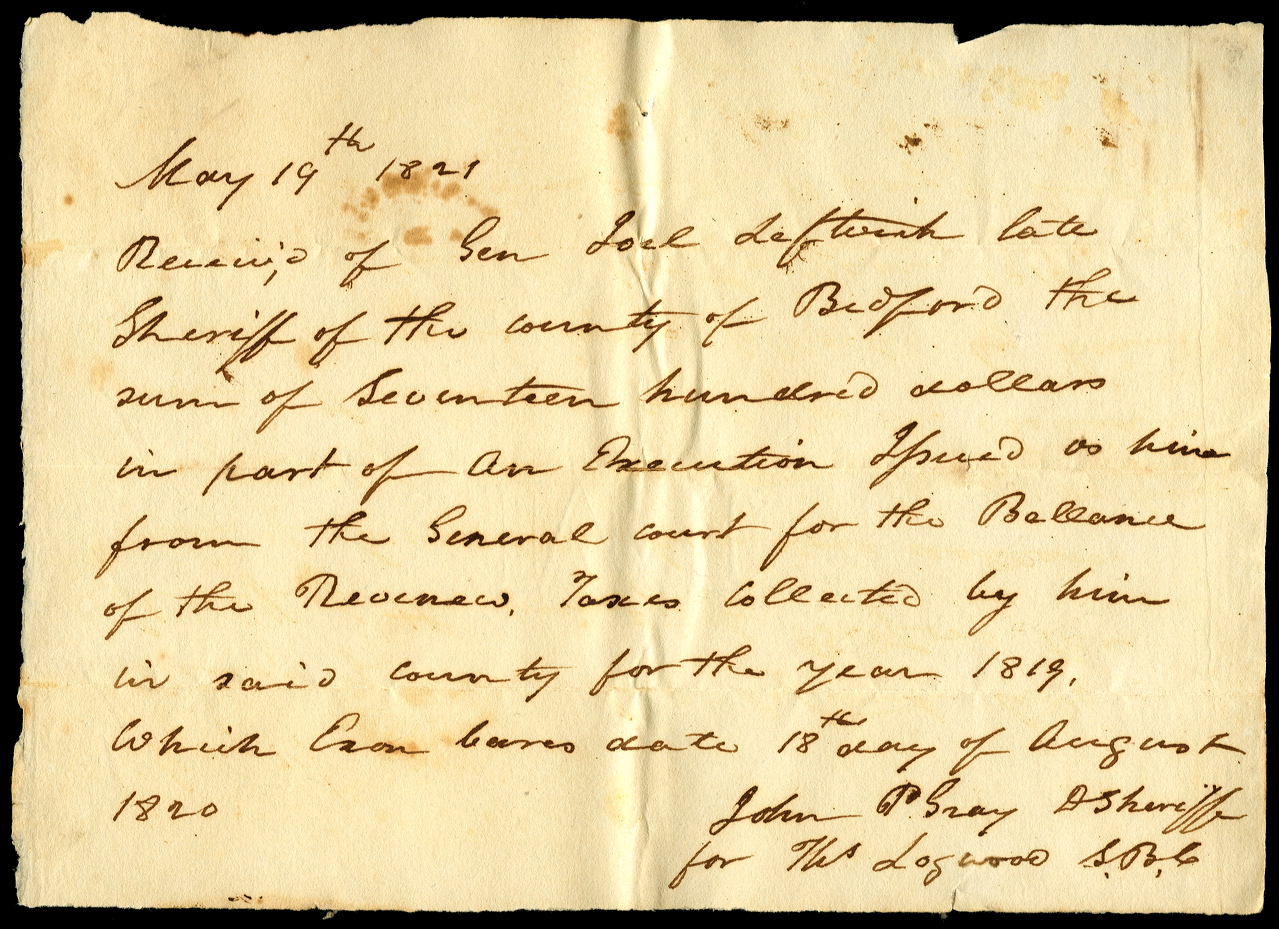 May 19th 1821
Receiv,d of Gen Joel Leftwich late
Sheriff of the county of Bedford the
sum of Seventeen hundred dollars
in part of an Execution Issued vs him
from the General court for the Ballance
of the Revenew, Taxes Collected by him
in said county for the year 1819,
Which Exon bares date 18th day of August
1820
John P Gray D Sheriff
for Ths Logwood S.B.C